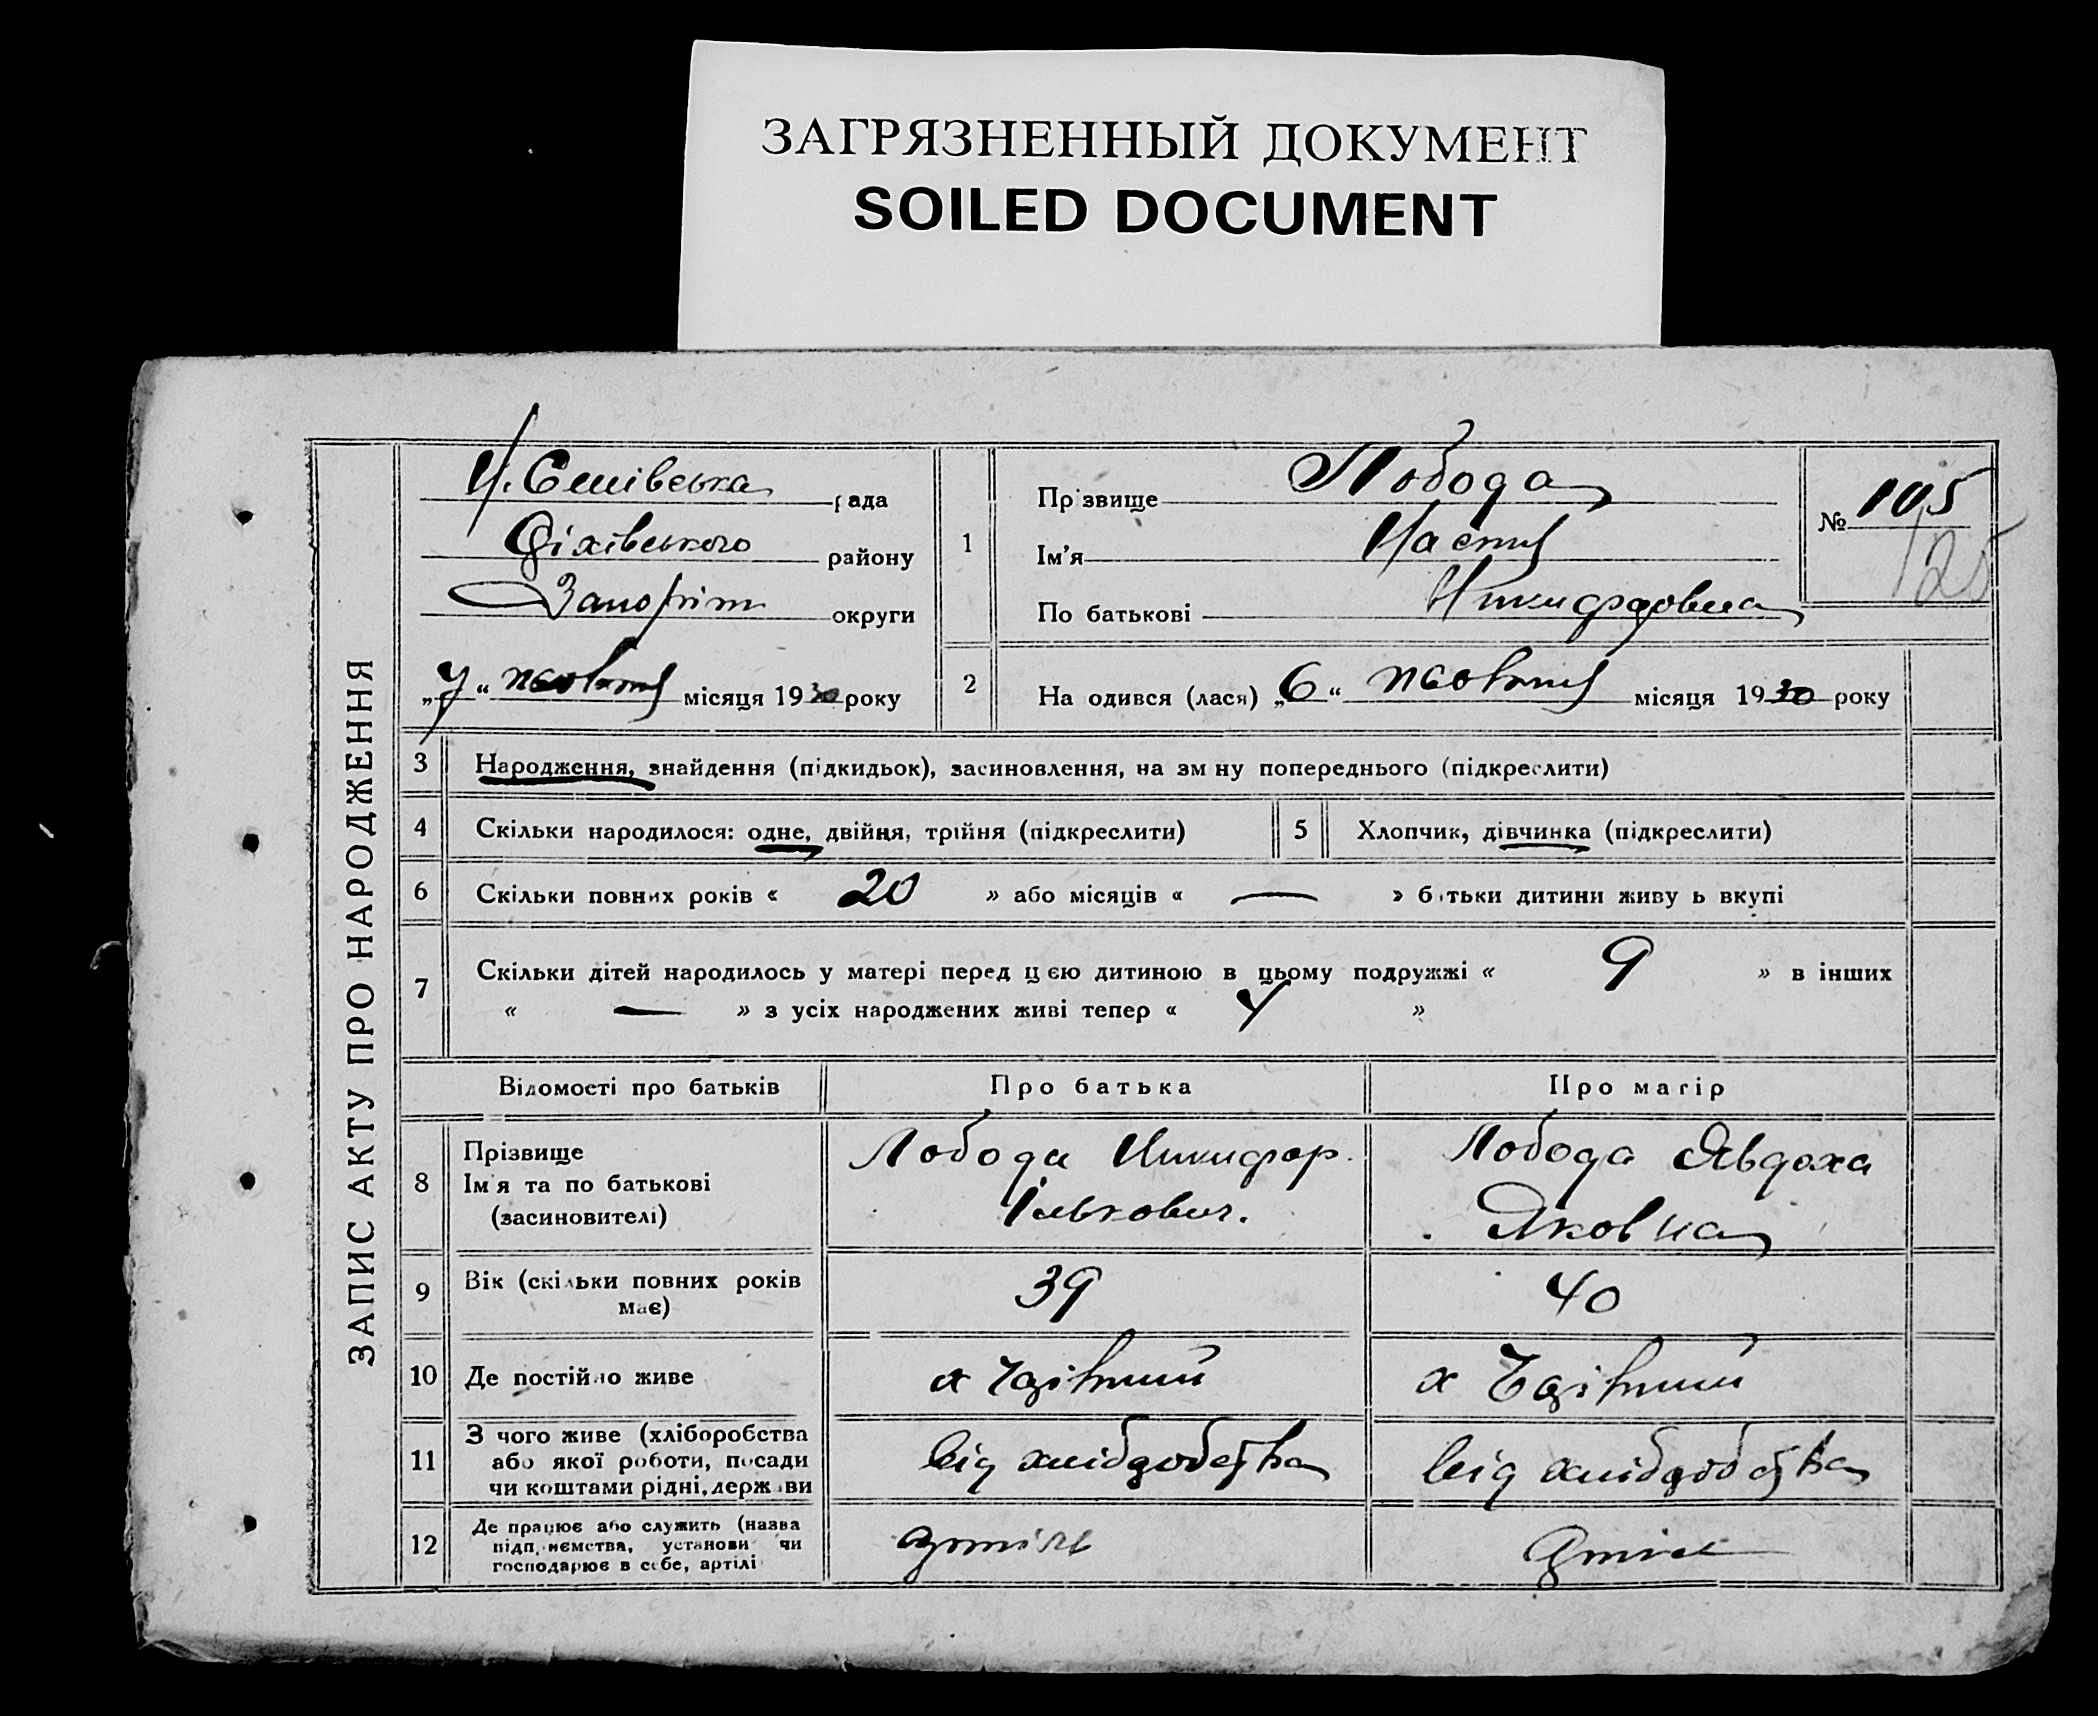 ЗАГРЯЗНЕННЫЙ ДОКУМЕНТ
SOILED DOCUMENT
ЗАПИС АКТУ ПРО НАРОДЖЕННЯ
рада
району
Запоріж округи
„7“ жовтня місяця 1930 року
1
Прізвище Лобода
Ім'я Настя
По батькові Никифоровна
№ 105
125
2
На одився (лася) „6“ жовтня місяця 1930 року
3 Народження, знайдення (підкидьок), засиновлення, на зм ну попереднього (підкреслити)
4 Скільки народилося: одне, двійня, трійня (підкреслити)
5 Хлопчик, дівчинка (підкреслити)
6 Скільки повних років « 20 » або місяців « — » б тьки дитини живу ь вкупі
7 Скільки дітей народилось у матері перед цією дитиною в цьому подружжі « 9 » в інших
« — » з усіх народжених живі тепер « 4 »
Відомості про батьків
Про батька
Про матір
8 Прізвище
Ім'я та по батькові
(засиновителі)
Лобода Никифор
Ількович.
Лобода Явдоха
Яковна
9 Вік (скільки повних років
має)
39
40
10 Де постійно живе
х
х
11 З чого живе (хліборобства
або якої роботи, посади
чи коштами рідні, держави
від хлібробства
від хлібробства
12 Де працює або служить (назва
підп иємства, установи чи
господарює в себе, артілі
артіль